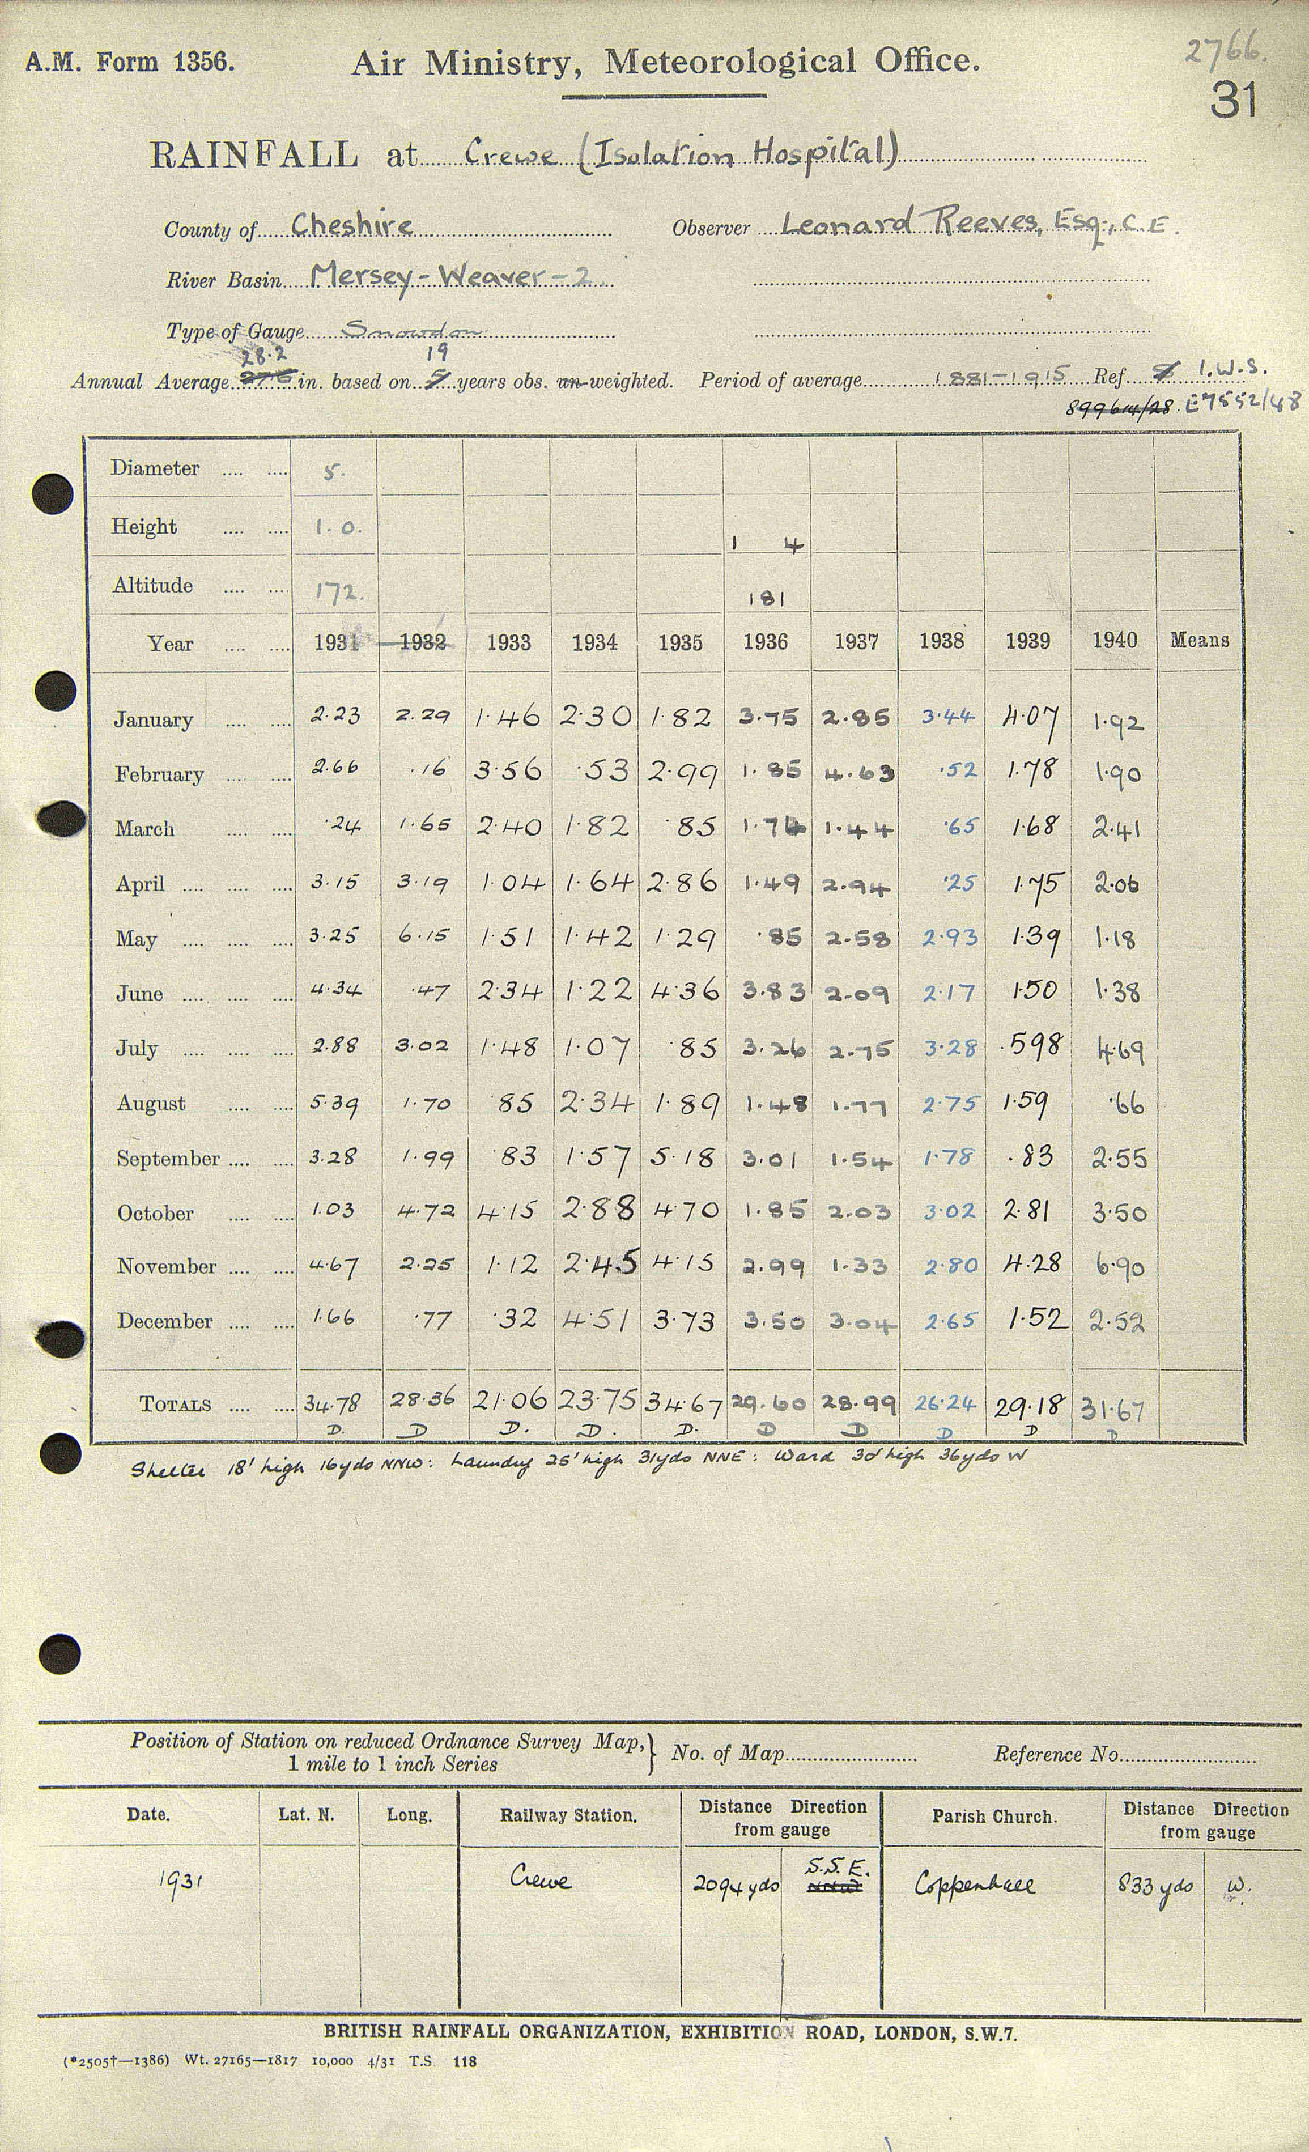 2766.
A.M. Form 1356. Air Ministry, Meteorological Office.
31
RAINFALL at Crewe (Isolation Hospital)
County of Cheshire Observer Leonard Reeves, Esq., C.E.
River Basin Mersey-Weaver-2
Type of Gauge Snowdon
28.2 19
Annual Average 27.6 in. based on 5 years obs. un-weighted. Period of average 1881-1915 Ref. I.W.S.
E7552/48
Diameter .... .... 5.
Height .... .... 1.0. 1 4
Altitude .... .... 172. 181
Year .... .... 1931 1932 1933 1934 1935 1936 1937 1938 1939 1940 Means
January .... .... 2.23 2.29 1.46 2.30 1.82 3.75 2.85 3.44 4.07 1.92
February .... .... 2.66 .16 3.56 .53 2.99 1.85 4.63 .52 1.78 1.90
March .... .... .24 1.65 2.40 1.82 .85 1.74 1.44 .65 1.68 2.41
April .... .... .... 3.15 3.19 1.04 1.64 2.86 1.49 2.94 .25 1.75 2.06
May .... .... .... 3.25 6.15 1.51 1.42 1.29 .85 2.58 2.93 1.39 1.18
June .... .... .... 4.34 .47 2.34 1.22 4.36 3.83 2.09 2.17 1.50 1.38
July .... .... .... 2.88 3.02 1.48 1.07 .85 3.26 2.75 3.28 .598 4.69
August .... .... 5.39 1.70 .85 2.34 1.89 1.48 1.77 2.75 1.59 .66
September .... .... 3.28 1.99 .83 1.57 5.18 3.01 1.54 1.78 .83 2.55
October .... .... 1.03 4.72 4.15 2.88 4.70 1.85 2.03 3.02 2.81 3.50
November .... .... 4.67 2.25 1.12 2.45 4.15 2.99 1.33 2.80 4.28 6.90
December .... .... 1.66 .77 .32 4.51 3.73 3.50 3.04 2.65 1.52 2.52
TOTALS .... .... 34.78 28.36 21.06 23.75 34.67 29.60 28.99 26.24 29.18 31.67
D. D D. D. D. D D D D D
Shelter 18' high 16yds NNW: Laundry 25' high 31yds NNE: Ward 30' high 36yds W
Position of Station on reduced Ordnance Survey Map,
1 mile to 1 inch Series } No. of Map Reference No.
Date. Lat. N. Long. Railway Station. Distance Direction from gauge Parish Church. Distance Direction from gauge
1931 Crewe 2094 yds S.S.E. NNW Coppenhall 833 yds W.
BRITISH RAINFALL ORGANIZATION, EXHIBITION ROAD, LONDON, S.W.7.
(*2505†—1386) Wt. 27165—1817 10,000 4/31 T.S. 118